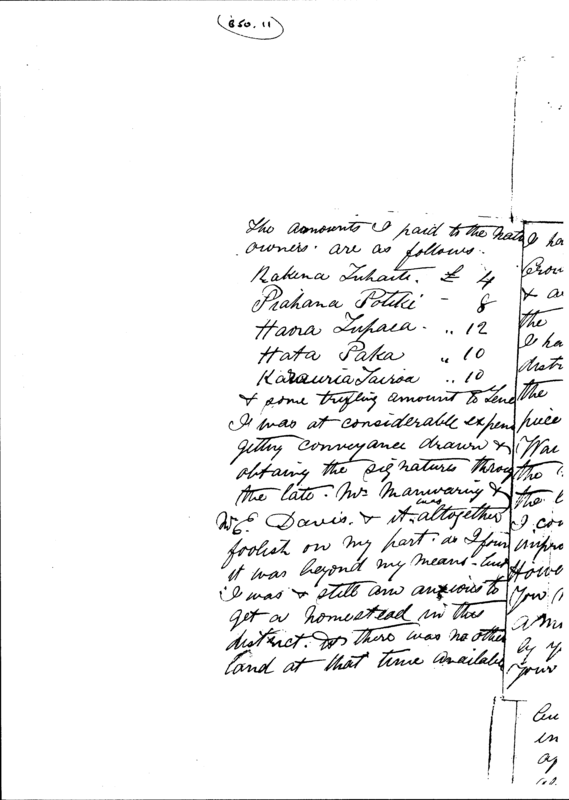 (850.11)
The amounts I paid to the nati
owners are as follows.
Rakena Tuhaiti. £ 4
Pirahana Potiki - 8
Haora Tupaea. „ 12
Hata Paka „ 10
Karauria Tairoa „ 10
& some trifling amount to
I was at considerable expen
getting conveyance drawn &
obtaing the signatures throug
the late. Mr Manwaring &
Mr E. Davis. & it was altogether
foolish on my part as I foun
it was beyond my means - but
I was & still am anxious to
get a homestead in this
district. & there was no other
land at that time available
I ha
& a
the
I ha
distr
the
piece
Wai
the
the
I cou
impro
Howe
You
by y
Your
in
ap